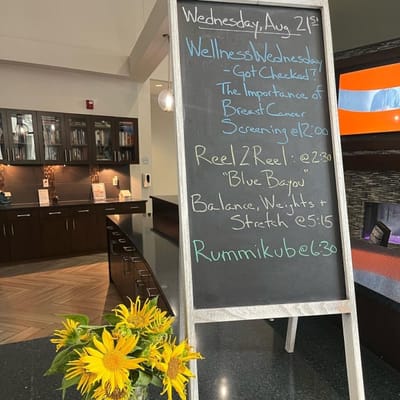 Wednesday, Aug 21st
Wellness Wednesday
- Got Checked?
The Importance of
Breast Cancer
Screening @ 12:00
Reel 2 Reel: @ 2:30
"Blue Bayou"
Balance, Weights +
Stretch @ 5:15
Rummikub @ 6:30